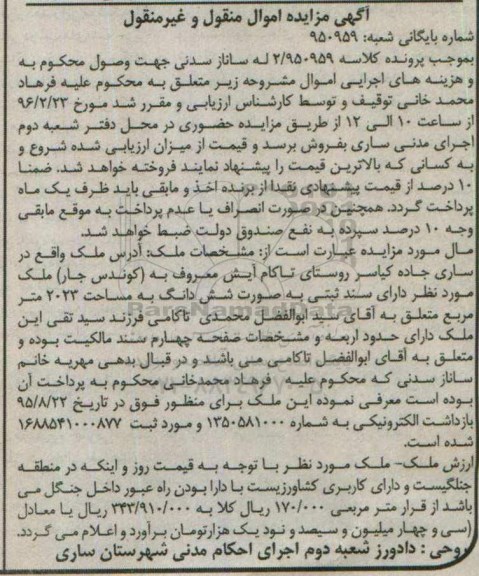 آگهی مزایده اموال منقول و غیرمنقول
شماره بایگانی شعبه: ۹۵۰۹۵۹
بموجب پرونده کلاسه ۲/۹۵۰۹۵۹ له ساناز سدنی جهت وصول محکوم به
و هزینه های اجرایی اموال مشروحه زیر متعلق به محکوم علیه فرهاد
محمد خانی توقیف و توسط کارشناس ارزیابی و مقرر شد مورخ ۹۶/۲/۲۳
از ساعت ۱۰ الی ۱۲ از طریق مزایده حضوری در محل دفتر شعبه دوم
اجرای مدنی ساری بفروش برسد و قیمت از میزان ارزیابی شده شروع و
به کسانی که بالاترین قیمت را پیشنهاد نمایند فروخته خواهد شد. ضمنا
۱۰ درصد از قیمت پیشنهادی نقدا از برنده اخذ و مابقی باید ظرف یک ماه
پرداخت گردد. همچنین در صورت انصراف یا عدم پرداخت به موقع مابقی
وجه ۱۰ درصد سپرده به نفع صندوق دولت ضبط خواهد شد.
مال مورد مزایده عبارت است از: مشخصات ملک: آدرس ملک واقع در
ساری جاده کیاسر روستای تاکام آیش معروف به (کوندس جار) ملک
مورد نظر دارای سند ثبتی به صورت شش دانگ به مساحت ۲۰۲۳ متر
مربع متعلق به آقای سید ابوالفضل محمدی تاکامی فرزند سید تقی این
ملک دارای حدود اربعه و مشخصات صفحه چهارم سند مالکیت بوده و
متعلق به آقای ابوالفضل تاکامی می باشد و در قبال بدهی مهریه خانم
ساناز سدنی که محکوم علیه فرهاد محمدخانی محکوم به پرداخت آن
بوده است معرفی نموده این ملک برای منظور فوق در تاریخ ۹۵/۸/۲۲
بازداشت الکترونیکی به شماره ۱۳۵۰۵۸۱۰۰۰ و مورد ثبت ۱۶۸۸۵۴۱۰۰۰۸۷۷
شده است.
ارزش ملک- ملک مورد نظر با توجه به قیمت روز و اینکه در منطقه
جنلگیست و دارای کاربری کشاورزیست با دارا بودن راه عبور داخل جنگل می
باشد از قرار متر مربعی ۱۷۰/۰۰۰ ریال کلا به ۳۴۳/۹۱۰/۰۰۰ ریال یا معادل
(سی و چهار میلیون و سیصد و نود یک هزارتومان برآورد و اعلام می گردد.
روحی : دادورز شعبه دوم اجرای احکام مدنی شهرستان ساری